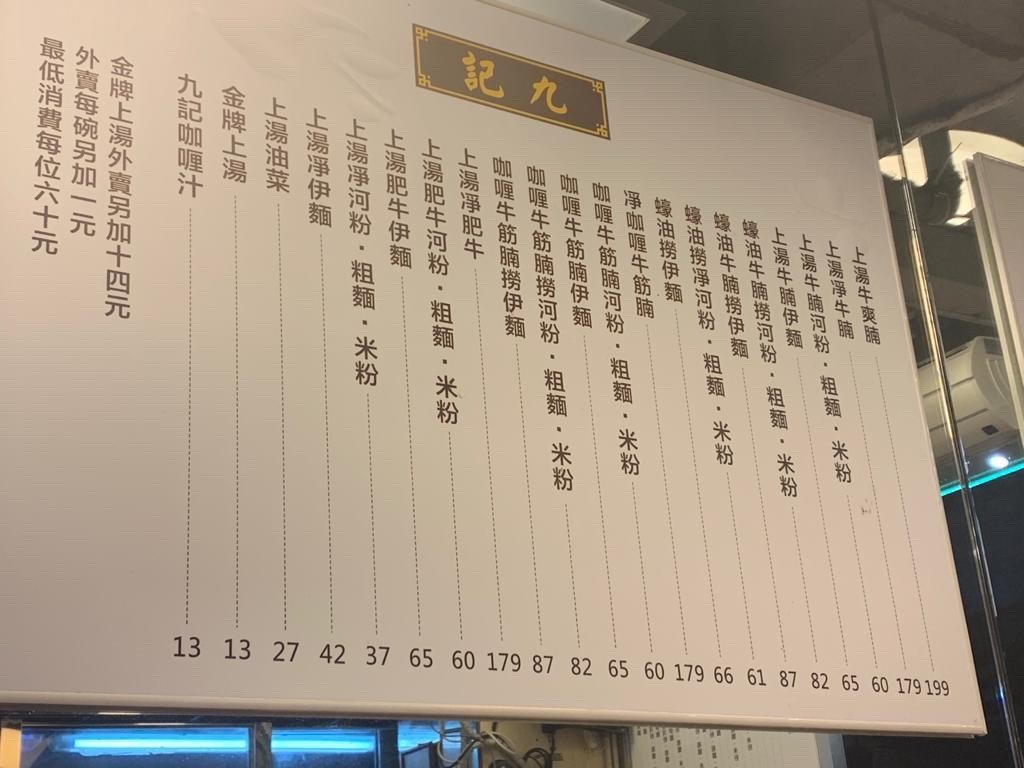 九記
上湯牛爽腩 199
上湯淨牛腩 179
上湯牛腩河粉．粗麵．米粉 60
上湯牛腩伊麵 65
蠔油牛腩撈河粉．粗麵．米粉 82
蠔油牛腩撈伊麵 87
蠔油撈淨河粉．粗麵．米粉 61
蠔油撈伊麵 66
淨咖喱牛筋腩 179
咖喱牛筋腩河粉．粗麵．米粉 60
咖喱牛筋腩伊麵 65
咖喱牛筋腩撈河粉．粗麵．米粉 82
咖喱牛筋腩撈伊麵 87
上湯淨肥牛 179
上湯肥牛河粉．粗麵．米粉 60
上湯肥牛伊麵 65
上湯淨河粉．粗麵．米粉 37
上湯淨伊麵 42
上湯油菜 27
金牌上湯 13
九記咖喱汁 13
金牌上湯外賣另加十四元
外賣每碗另加一元
最低消費每位六十元